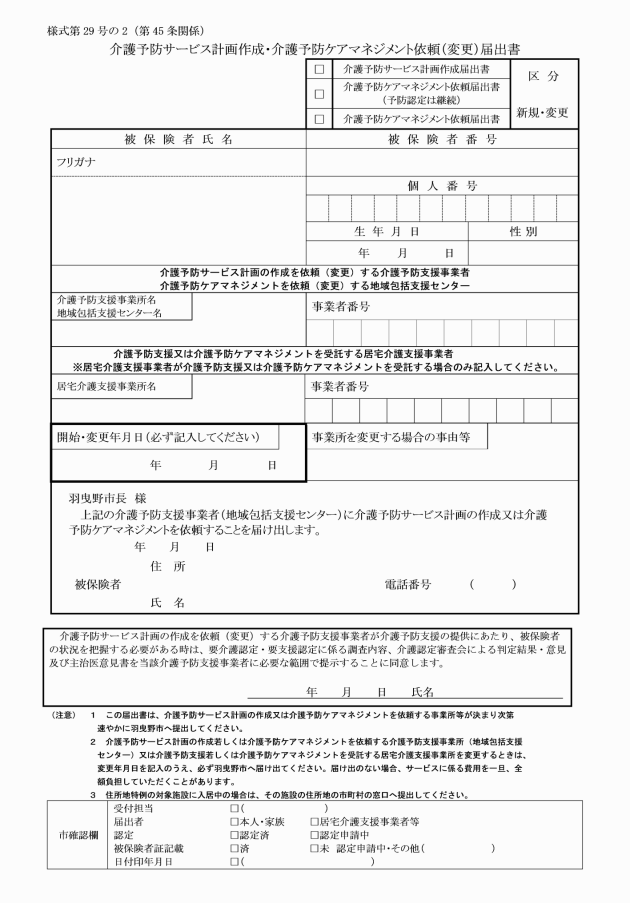 様式第 29 号の 2 (第 45 条関係)
介護予防サービス計画作成・介護予防ケアマネジメント依頼(変更)届出書
□ 介護予防サービス計画作成届出書
□ 介護予防ケアマネジメント依頼届出書
(予防認定は継続)
□ 介護予防ケアマネジメント依頼届出書
区 分
新規・変更
被 保 険 者 氏 名
被 保 険 者 番 号
フリガナ
個 人 番 号
生 年 月 日
性 別
年 月 日
介護予防サービス計画の作成を依頼(変更)する介護予防支援事業者
介護予防ケアマネジメントを依頼(変更)する地域包括支援センター
介護予防支援事業所名
地域包括支援センター名
事業者番号
介護予防支援又は介護予防ケアマネジメントを受託する居宅介護支援事業者
※居宅介護支援事業者が介護予防支援又は介護予防ケアマネジメントを受託する場合のみ記入してください。
居宅介護支援事業所名
事業者番号
開始・変更年月日(必ず記入してください)
年 月 日
事業所を変更する場合の事由等
羽曳野市長 様
上記の介護予防支援事業者(地域包括支援センター)に介護予防サービス計画の作成又は介護
予防ケアマネジメントを依頼することを届け出します。
年 月 日
住 所
被保険者
電話番号 ( )
氏 名
介護予防サービス計画の作成を依頼(変更)する介護予防支援事業者が介護予防支援の提供にあたり、被保険者
の状況を把握する必要がある時は、要介護認定・要支援認定に係る調査内容、介護認定審査会による判定結果・意見
及び主治医意見書を当該介護予防支援事業者に必要な範囲で提示することに同意します。
年 月 日 氏名
(注意) 1 この届出書は、介護予防サービス計画の作成又は介護予防ケアマネジメントを依頼する事業所等が決まり次第
速やかに羽曳野市へ提出してください。
2 介護予防サービス計画の作成若しくは介護予防ケアマネジメントを依頼する介護予防支援事業所(地域包括支援
センター)又は介護予防支援若しくは介護予防ケアマネジメントを受託する居宅介護支援事業所を変更するときは、
変更年月日を記入のうえ、必ず羽曳野市へ届け出てください。届け出のない場合、サービスに係る費用を一旦、全
額負担していただくことがあります。
3 住所地特例の対象施設に入居中の場合は、その施設の住所地の市町村の窓口へ提出してください。
市確認欄
受付担当 □( )
届出者 □本人・家族 □居宅介護支援事業者等
認定 □認定済 □認定申請中
被保険者証記載 □済 □未 認定申請中・その他( )
日付印年月日 □( )